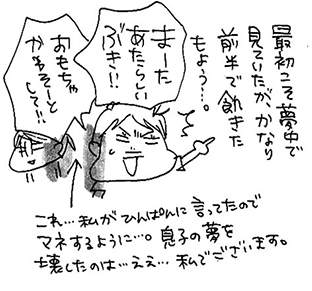 最初こそ夢中で
見ていたが、かなり
前半で飽きた
もよう…。
まーた
あたらしい
ぶき!!
おもちゃ
かわそーと
して!!
これ…私がひんぱんに言ってたので
マネするように…。息子の夢を
壊したのは…ええ…私でございます。